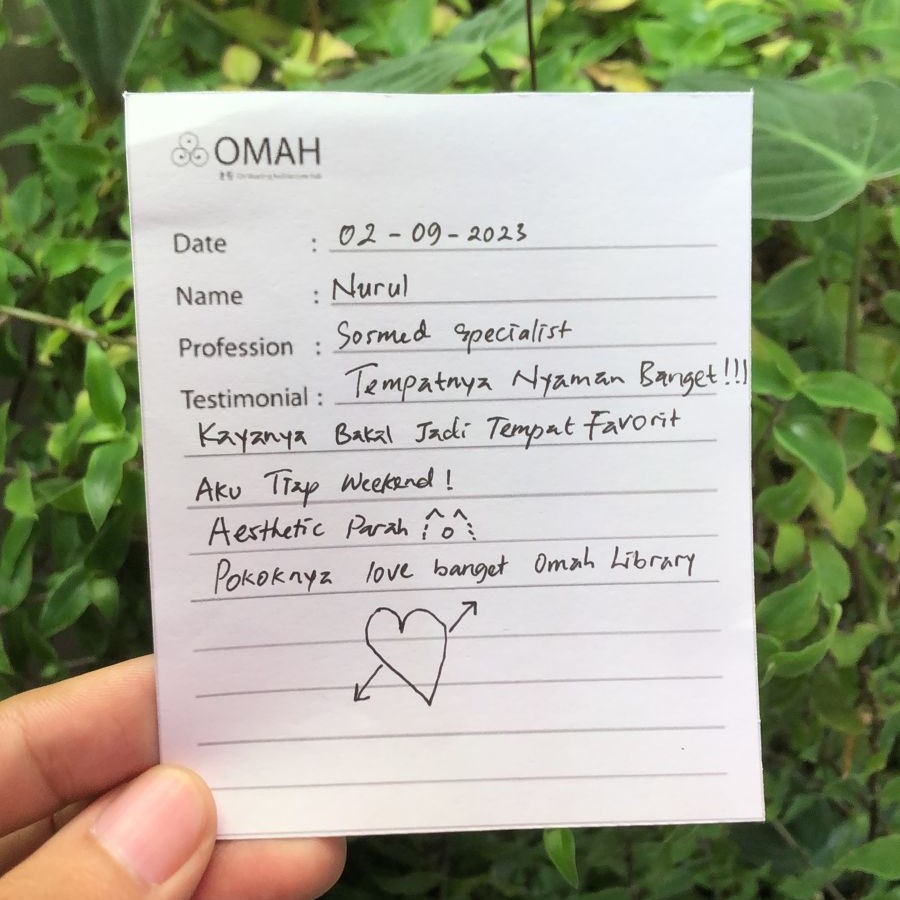 OMAH
Date : 02 - 09 - 2023
Name : Nurul
Profession : Sosmed specialist
Testimonial : Tempatnya Nyaman Banget!!!
Kayanya Bakal Jadi Tempat Favorit
Aku Tiap Weekend!
Aesthetic Parah
Pokoknya love banget Omah Library